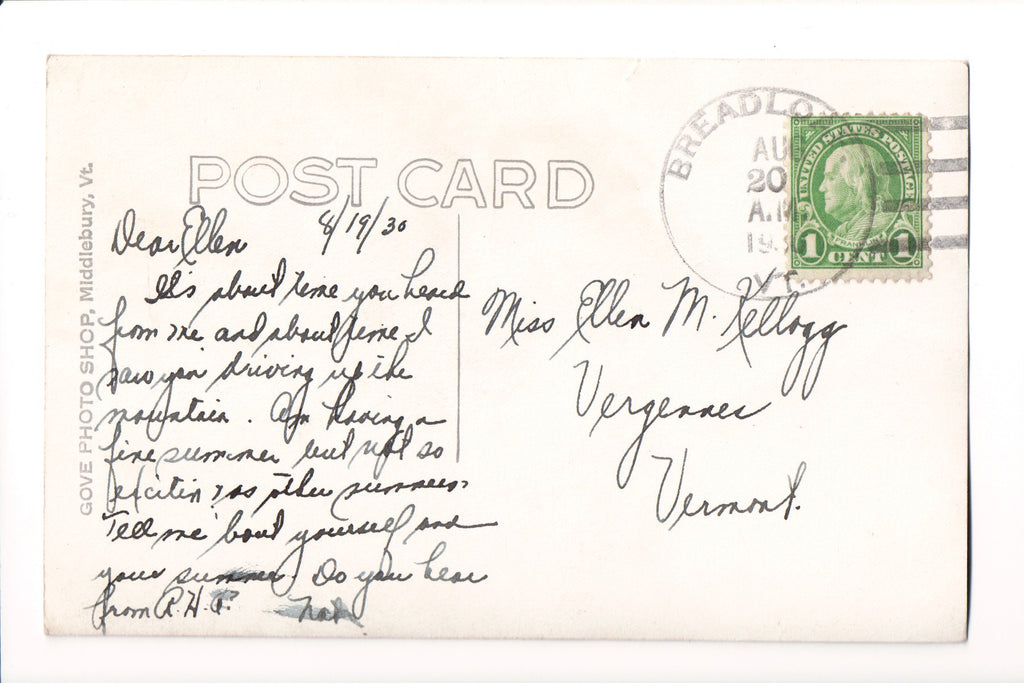 POST CARD
GOVE PHOTO SHOP, Middlebury, Vt.
8/19/30
Dear Ellen
It's about time you heard
from me and about time I
saw you driving up the
mountain. Am having a
fine summer but not so
exciting as other summers.
Tell me 'bout yourself and
your summer. Do you hear
from R.H.P.
Nat
BREADLO
AU
20
A.M.
19
VT.
UNITED STATES POSTAGE
FRANKLIN
1 CENT 1
Miss Ellen M. Kellogg
Vergennes
Vermont.